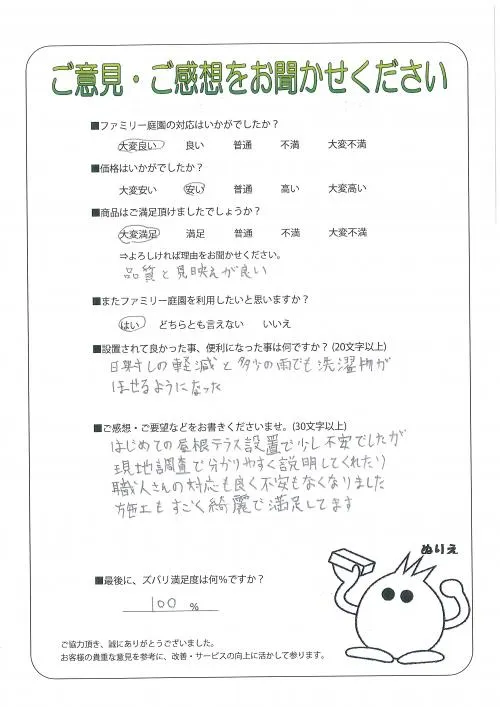 ご意見・ご感想をお聞かせください
■ファミリー庭園の対応はいかがでしたか？
大変良い 良い 普通 不満 大変不満
■価格はいかがでしたか？
大変安い 安い 普通 高い 大変高い
■商品はご満足頂けましたでしょうか？
大変満足 満足 普通 不満 大変不満
⇒よろしければ理由をお聞かせください。
品質と見映えが良い
■またファミリー庭園を利用したいと思いますか？
はい どちらとも言えない いいえ
■設置されて良かった事、便利になった事は何ですか？(20文字以上)
日射しの軽減と多少の雨でも洗濯物が
ほせるようになった
■ご感想・ご要望などをお書きくださいませ。(30文字以上)
はじめての屋根テラス設置で少し不安でしたが
現地調査で分かりやすく説明してくれたり
職人さんの対応も良く不安もなくなりました
施工もすごく綺麗で満足してます
ぬりえ
■最後に、ズバリ満足度は何％ですか？
100 %
ご協力頂き、誠にありがとうございました。
お客様の貴重な意見を参考に、改善・サービスの向上に活かして参ります。